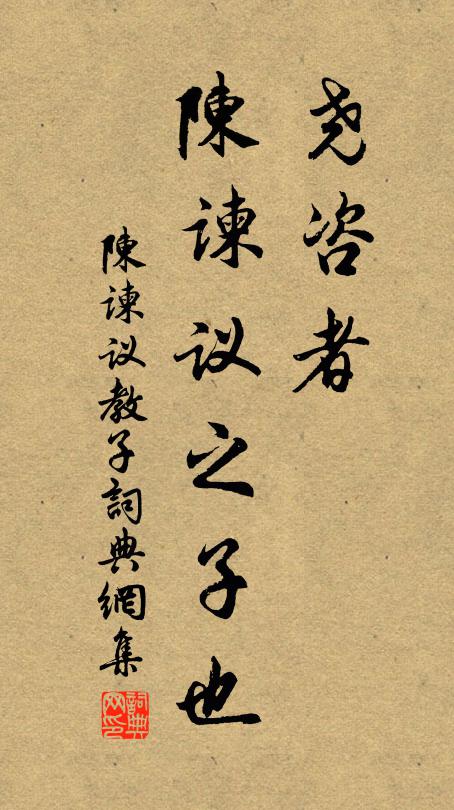 尧咨者
陳谏议之子也
陳谏议教子詞典網集
詞典网印